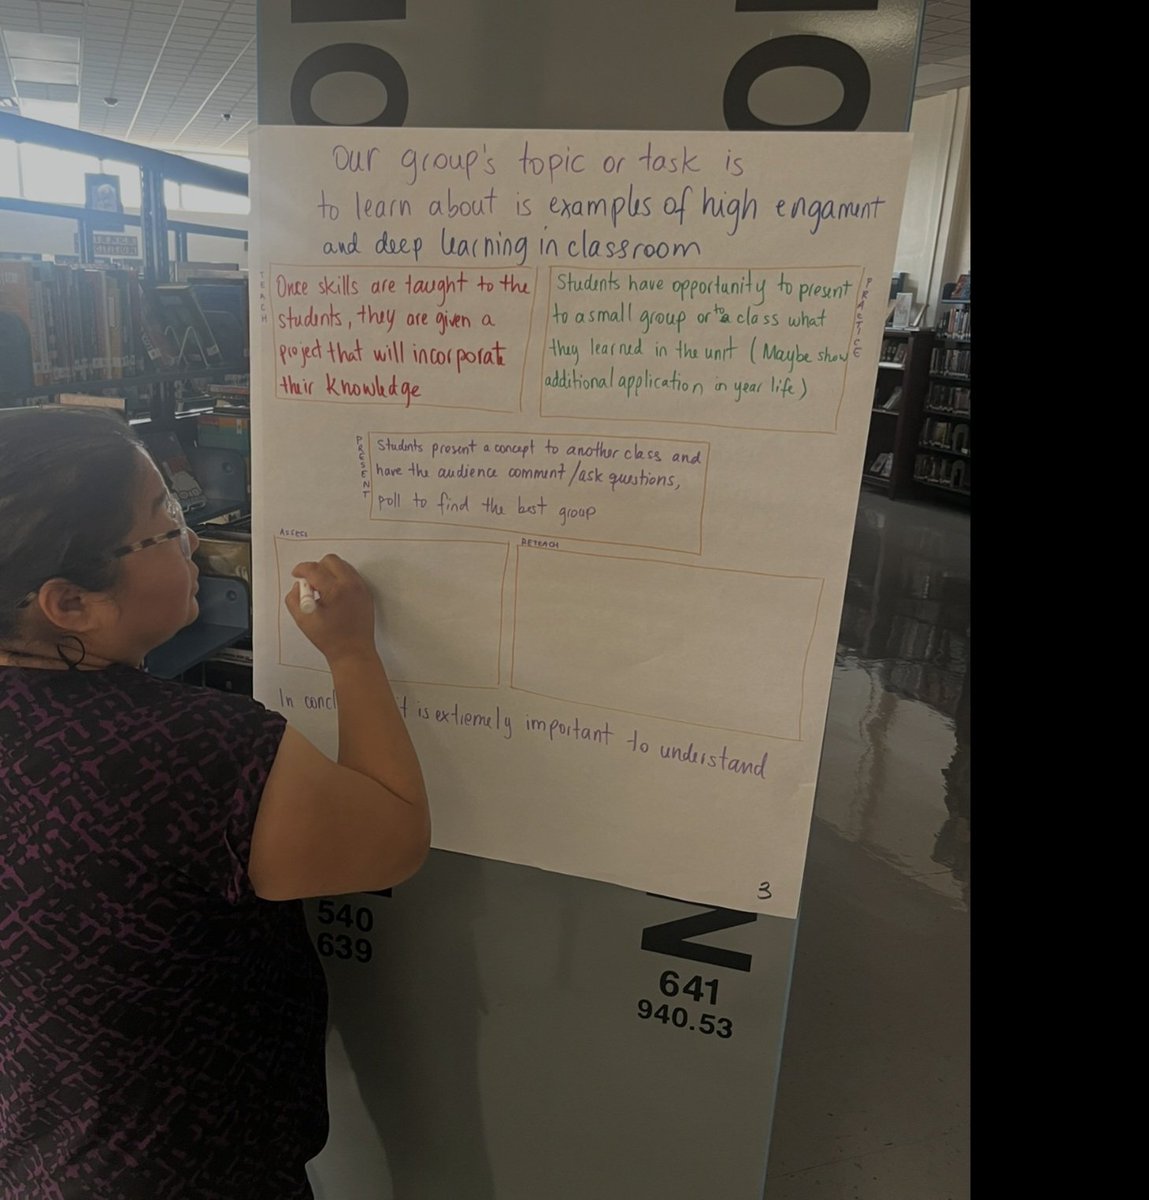 Our group's topic or task is
to learn about is examples of high engament
and deep learning in classroom
TEACH
Once skills are taught to the
students, they are given a
project that will incorporate
their knowledge
Students have opportunity to present
to a small group or to a class what
they learned in the unit (Maybe show
additional application in year life)
PRACTICE
PRESENT
Students present a concept to another class and
have the audience comment/ask questions,
poll to find the best group
RETEACH
In concl t is extremely important to understand
3
540
639
N
641
940.53